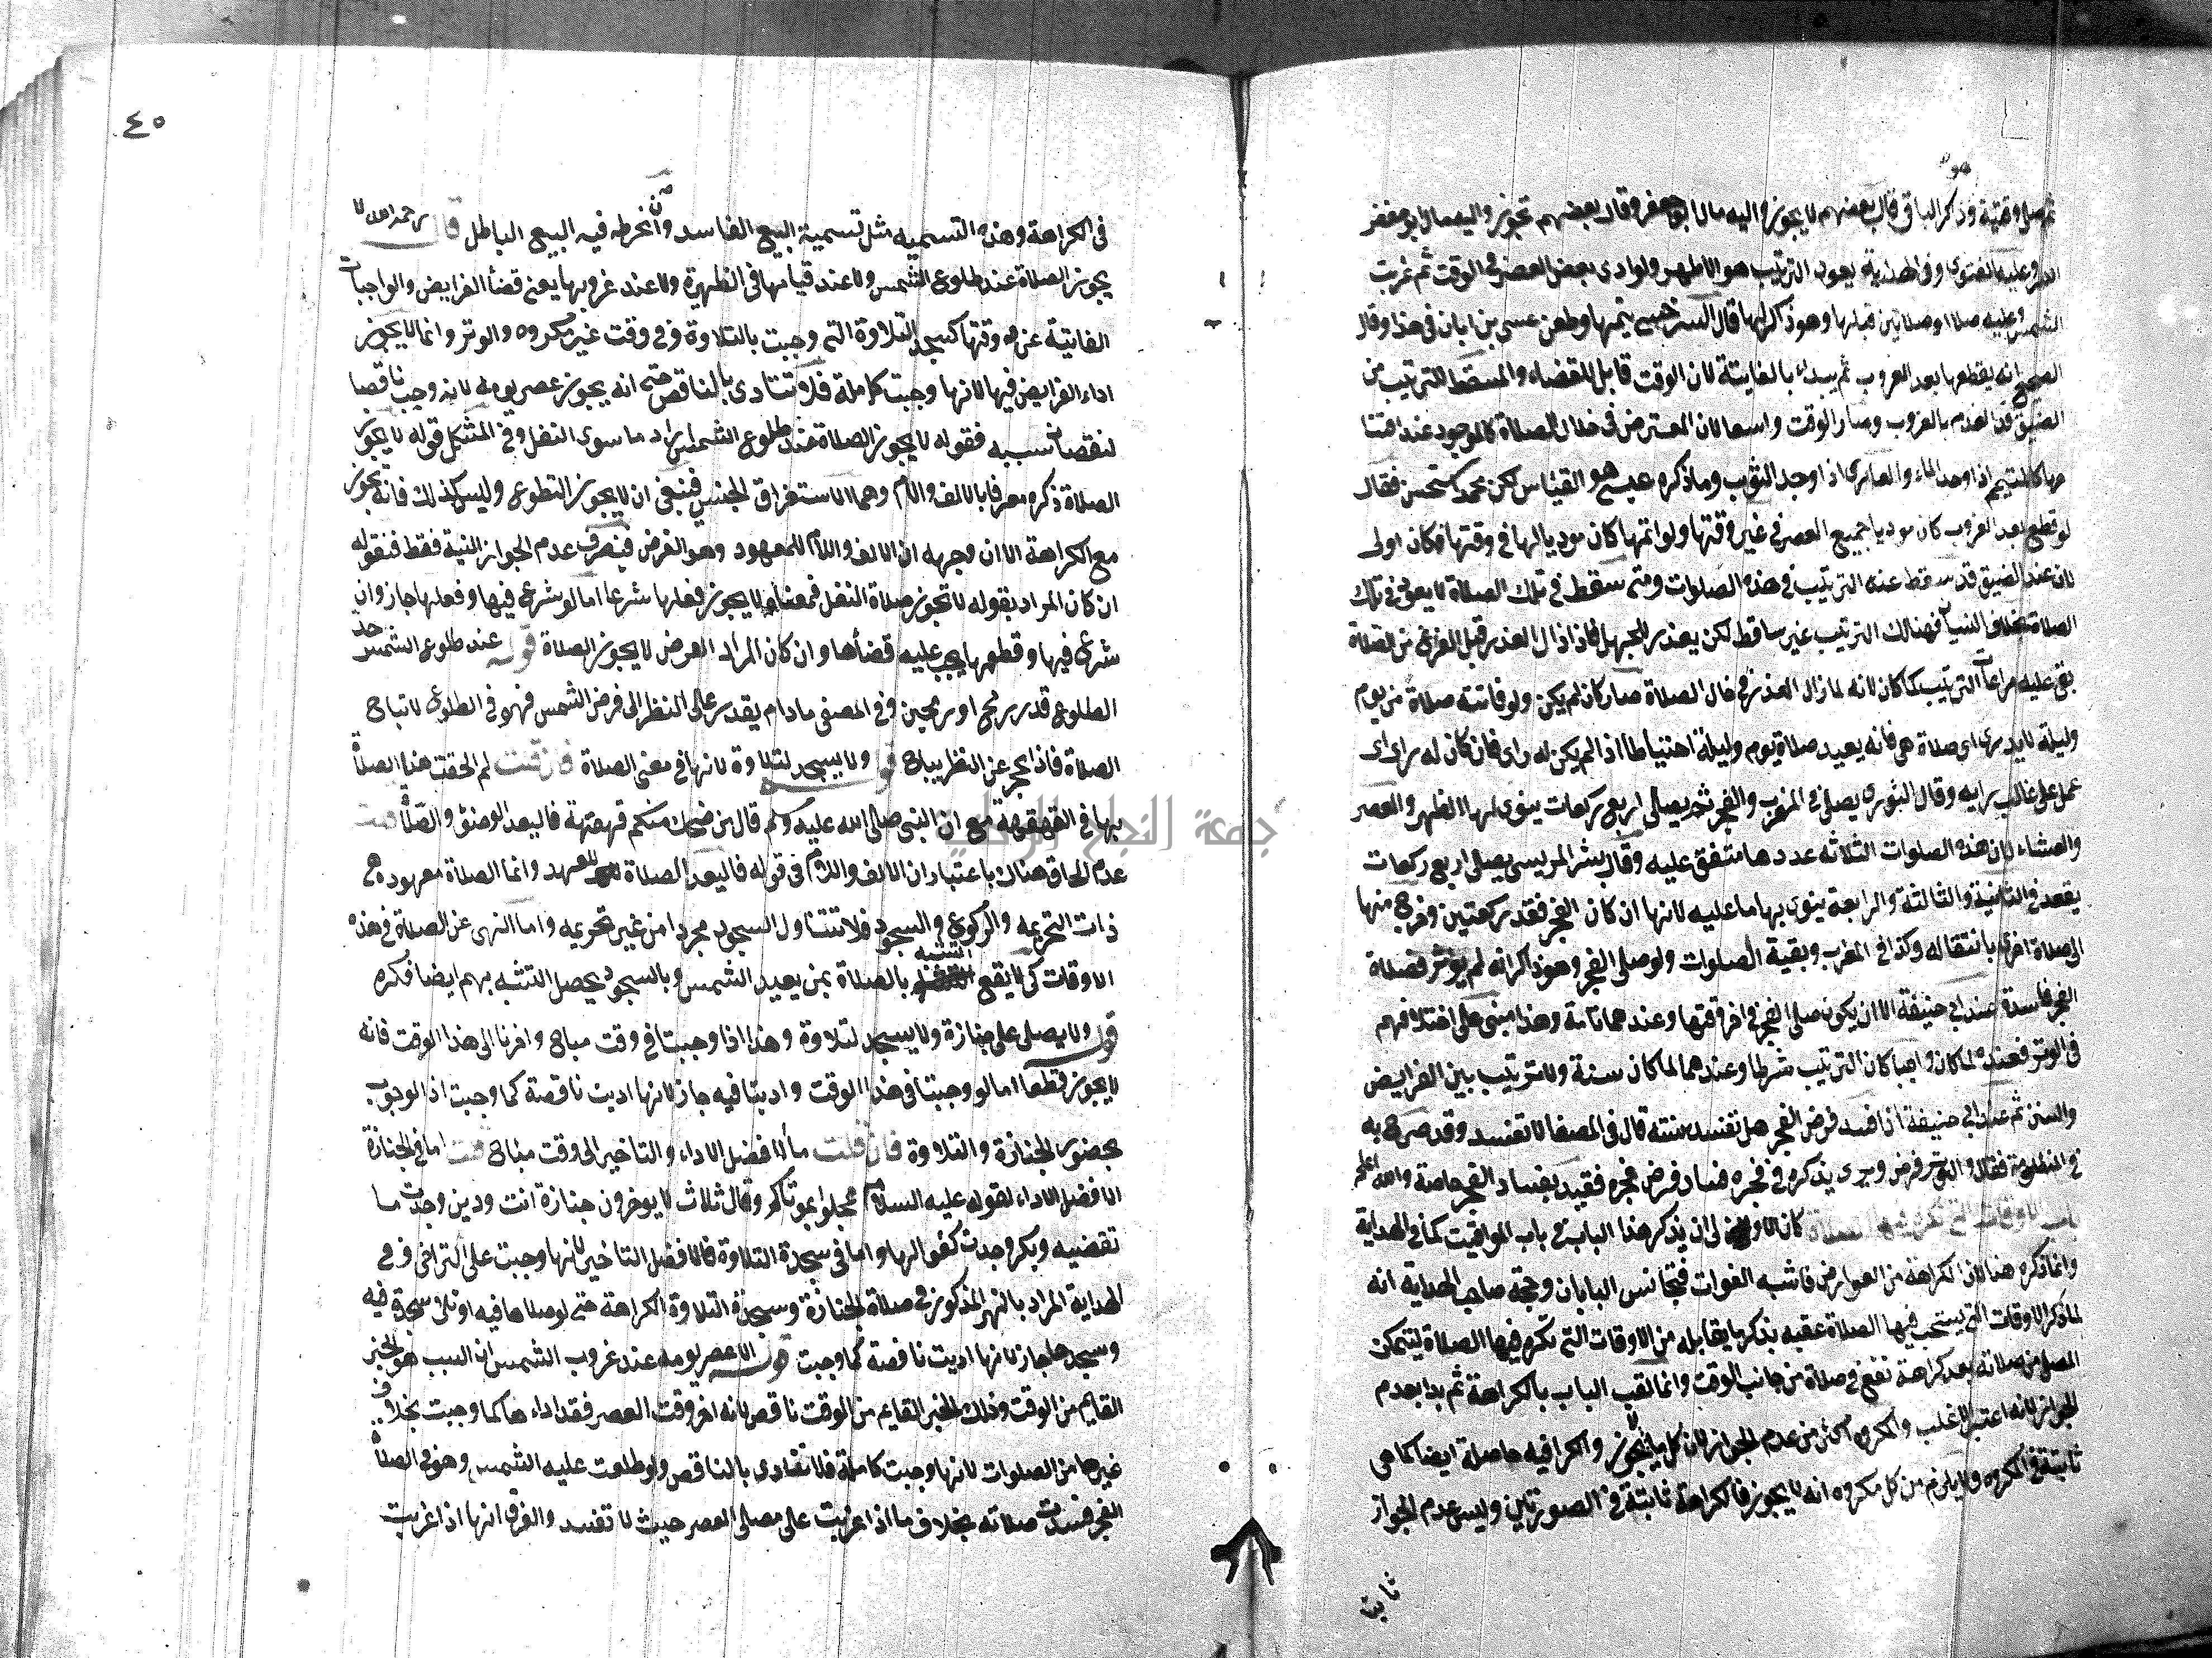 ثم صلى وقتية وذكر الباقي قال بعضهم لا يجوز واليه مال ابو جعفر وقال بعضهم تجوز واليه مال ابو حفص
وعليه الفتوى وفي الهداية يعود الترتيب هو الاظهر ولو ادى بعض العصر في الوقت ثم غربت
الشمس وعليه صلاة او صلاتين قبلها وهو ذاكر لها قال السرخسي يتمها وطعن عيسى بن ابان في هذا وقال
الصحيح انه يقطعها بعد الغروب ثم يبداء بالفايتة لان الوقت قابل للقضاء والمسقط للترتيب من
الضيق قد انعدم بالغروب وصار الوقت واسعا لان المعترض في خلال الصلاة كالموجود عند افتتا
حها كالمتيمم اذا وجد الماء والعاري اذا وجد الثوب وما ذكره عيسى هو القياس لكن محمد استحسن فقال
لو قطع بعد الغروب كان موديا جميع العصر في غير وقتها ولو اتمها كان موديا لها في وقتها فكان اولى
لان عند الضيق قد سقط عنه الترتيب في هذه الصلوات ومتى سقط في تلك الصلاة لا يعود في تلك
الصلاة بخلاف النسيان فهنالك الترتيب غير ساقط لكن يعذر للجهل فاذا زال العذر قبل الفراغ من الصلاة
بقي عليه مراعاة الترتيب كما كان لانه لما زال العذر في خلال الصلاة صار كان لم يكن ولو فاتته صلاة من يوم
وليلة لا يدري اي صلاة هي فانه يعيد صلاة يوم وليلة احتياطا اذا لم يكن له راى فان كان له راى
عمل على غالب رايه وقال الثوري يصلى المغرب والفجر ثم يصلى اربع ركعات ينوى لها الظهر والعصر
والعشاء لان هذه الصلوات الثلاثة عددها متفق عليه وقال بشر المريسي يصلى اربع ركعات
يقعد في الثانية والثالثة والرابعة ينوى بها ما عليه لانها ان كان الفجر فقد ركعتين وخرج منها
الى صلاة اخرى بانتقاله وكذا في المغرب وبقية الصلوات ولو صلى الفجر وهو ذاكر انه لم يوتر فصلاة
الفجر فاسدة عند ابي حنيفة الا ان يكون صلى الفجر في اخر وقتها وعندهما تامة وهذا مبني على اختلافهم
في الوتر فعنده لما كان واجبا كان الترتيب شرطا وعندهما لما كان سنة ولا ترتيب بين الفرايض
والسنن ثم عند ابي حنيفة اذا فسد فرض الفجر هل تفسد سنته قال في المصفا لا تفسد وقد صرح به
في المنظومة فقال والوتر فرض ويرى بذكره في فجره فساد فرض فجره فقيد بفساد الفجر خاصة والله اعلم
باب الاوقات التي تكره فيها الصلاة كان الاولى ان يذكر هذا الباب في باب المواقيت كما في الهداية
وانما ذكره هنا لان الكراهة من العوارض فاشبه الفوات فتجانس البابان وحجة صاحب الهداية انه
لما ذكر الاوقات التي يستحب فيها الصلاة عقبه بذكر ما يقابله من الاوقات التي تكره فيها الصلاة ليتمكن
المصلى من صلاته بعد كراهة تقع في صلاة من جانب الوقت وانما لقب الباب بالكراهة ثم بدا بعدم
الجواز لانه اعتبر الاغلب والمكروه اعم من عدم الجواز لان كل ما لا يجوز والكراهية حاصلة ايضا كما هي
ثابتة في المكروه ولا يلزم من كل مكروه انه لا يجوز فالكراهة ثابتة في الصورتين وليس عدم الجواز
ثابت
٤٥
في الكراهة وهذه التسميه مثل تسمية البيع الفاسد وانخرط فيه البيع الباطل قال رحمه الله لا
يجوز الصلاة عند طلوع الشمس ولا عند قيامها في الظهيرة ولا عند غروبها يعني قضأ الفرايض والواجبات
الفايتة عن وقتها كسجدة التلاوة التي وجبت بالتلاوة في وقت غير مكروه والوتر وانما لا يجوز
اداء الفرايض فيها لانها وجبت كاملة فلا تتادى بالناقص حتى انه يجوز عصر يومه لانه وجب ناقصا
لنقصان سببه فقوله لا يجوز الصلاة عند طلوع الشمس اراد ما سوى النفل وفي المشكل قوله لا يجوز
الصلاة ذكره معرفا بالالف والام وهما لاستغراق الجنس فينبغي ان لا يجوز التطوع وليس كذلك فانه يجوز
مع الكراهة الا ان وجهه ان الالف واللام للمعهود وهو الفرض فينصرف عدم الجواز اليه فقط فنقوله
ان كان المراد بقوله لا تجوز صلاة النفل فمعناه لا يجوز فعلها شرعا اما لو شرع فيها وفعلها جاز وان
شرع فيها وقطعها يجب عليه قضأها وان كان المراد الفرض لا يجوز الصلاة قوله عند طلوع الشمس حد
الطلوع قدر رمح او رمحين وفي المصفى ما دام يقدر على النظر الى قرص الشمس فهو في الطلوع لا تباح
الصلاة فاذا عجز عن النظر يباح قوله ولا يسجد لتلاوة لانها في معنى الصلاة فان قلت لم الحقت هنا بالصلاة
بها في القهقهة مع ان النبي صلى الله عليه وسلم قال من ضحك منكم قهقهة فاليعد الوضؤ والصلاة قلت
عدم الحاق هناك باعتبار ان الالف واللام في قوله فاليعد الصلاة للعهد وانما الصلاة معهوده هي
ذات التحريمه والركوع والسجود فلا تتناول السجود مجردا من غير تحريمه واما النهى عن الصلاة في هذه
الاوقات كي لا يقع التشبه بالصلاة بمن يعبد الشمس وبالسجود يحصل التشبه بهم ايضا فكره
قوله ولا يصلى على جنازة ولا يسجد لتلاوة وهذا اذا وجبتا في وقت مباح واخرتا الى هذا الوقت فانه
لا يجوز قطعا اما لو وجبتا في هذا الوقت واديتا فيه جاز لانها اديت ناقصة كما وجبت اذ الوجوب
بحضور الجنازة والتلاوة فان قلت ما الافضل الاداء والتاخير الى وقت مباح قلت اما في الجنازة
الافضل الاداء لقوله عليه السلام عجلوا بموتاكم وقال ثلاث لا يوخرون جنازة اتت ودين وجدت ما
تقضيه وبكر وجدت كفوا لها واما في سجدة التلاوة فالافضل التاخير لانها وجبت على التراخي وفي
الهداية المراد بالنهي المذكور في صلاة الجنازة وسجدة التلاوة الكراهة حتى لو صلاها فيه او تلا سجدة فيه
وسجدها جاز لانها اديت ناقصة كما وجبت قوله الا عصر يومه عند غروب الشمس لان السبب هو الجزء
القايم من الوقت وذلك الجزء القايم من الوقت ناقص لانه اخر وقت العصر فقد اداءها كما وجبت بخلاف
غيرها من الصلوات لانها وجبت كاملة فلا تتادى بالناقص ولو طلعت عليه الشمس وهو في الصلاة
الفجر فسدت صلاته بخلاف ما اذا غربت على مصلى العصر حيث لا تفسد والفرق انها اذا غربت
جمعة النجاح الوطني